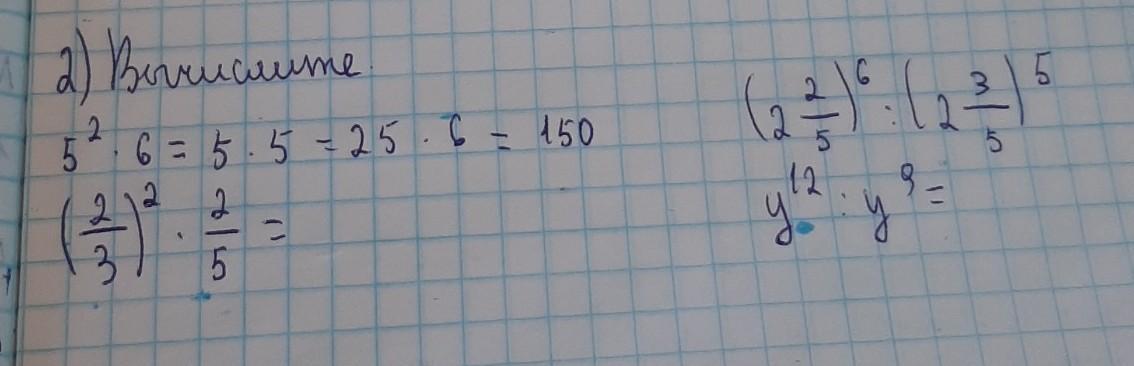 2) Вычислите.
5² · 6 = 5 · 5 = 25 · 6 = 150
(2/3)² · 2/5 =
(2 2/5)⁶ : (2 3/5)⁵
y¹² : y⁹ =